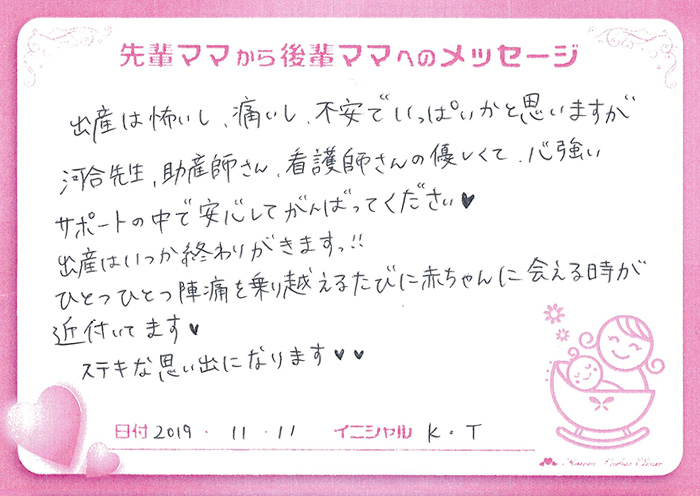 先輩ママから後輩ママへのメッセージ
出産は怖いし、痛いし、不安でいっぱいかと思いますが
河合先生、助産師さん、看護師さんの優しくて、心強い
サポートの中で安心してがんばってください♥
出産はいつか終わりがきますっ!!
ひとつひとつ陣痛を乗り越えるたびに赤ちゃんに会える時が
近付いてます♥
ステキな思い出になります♥♥
日付 2019.11.11 イニシャル K.T